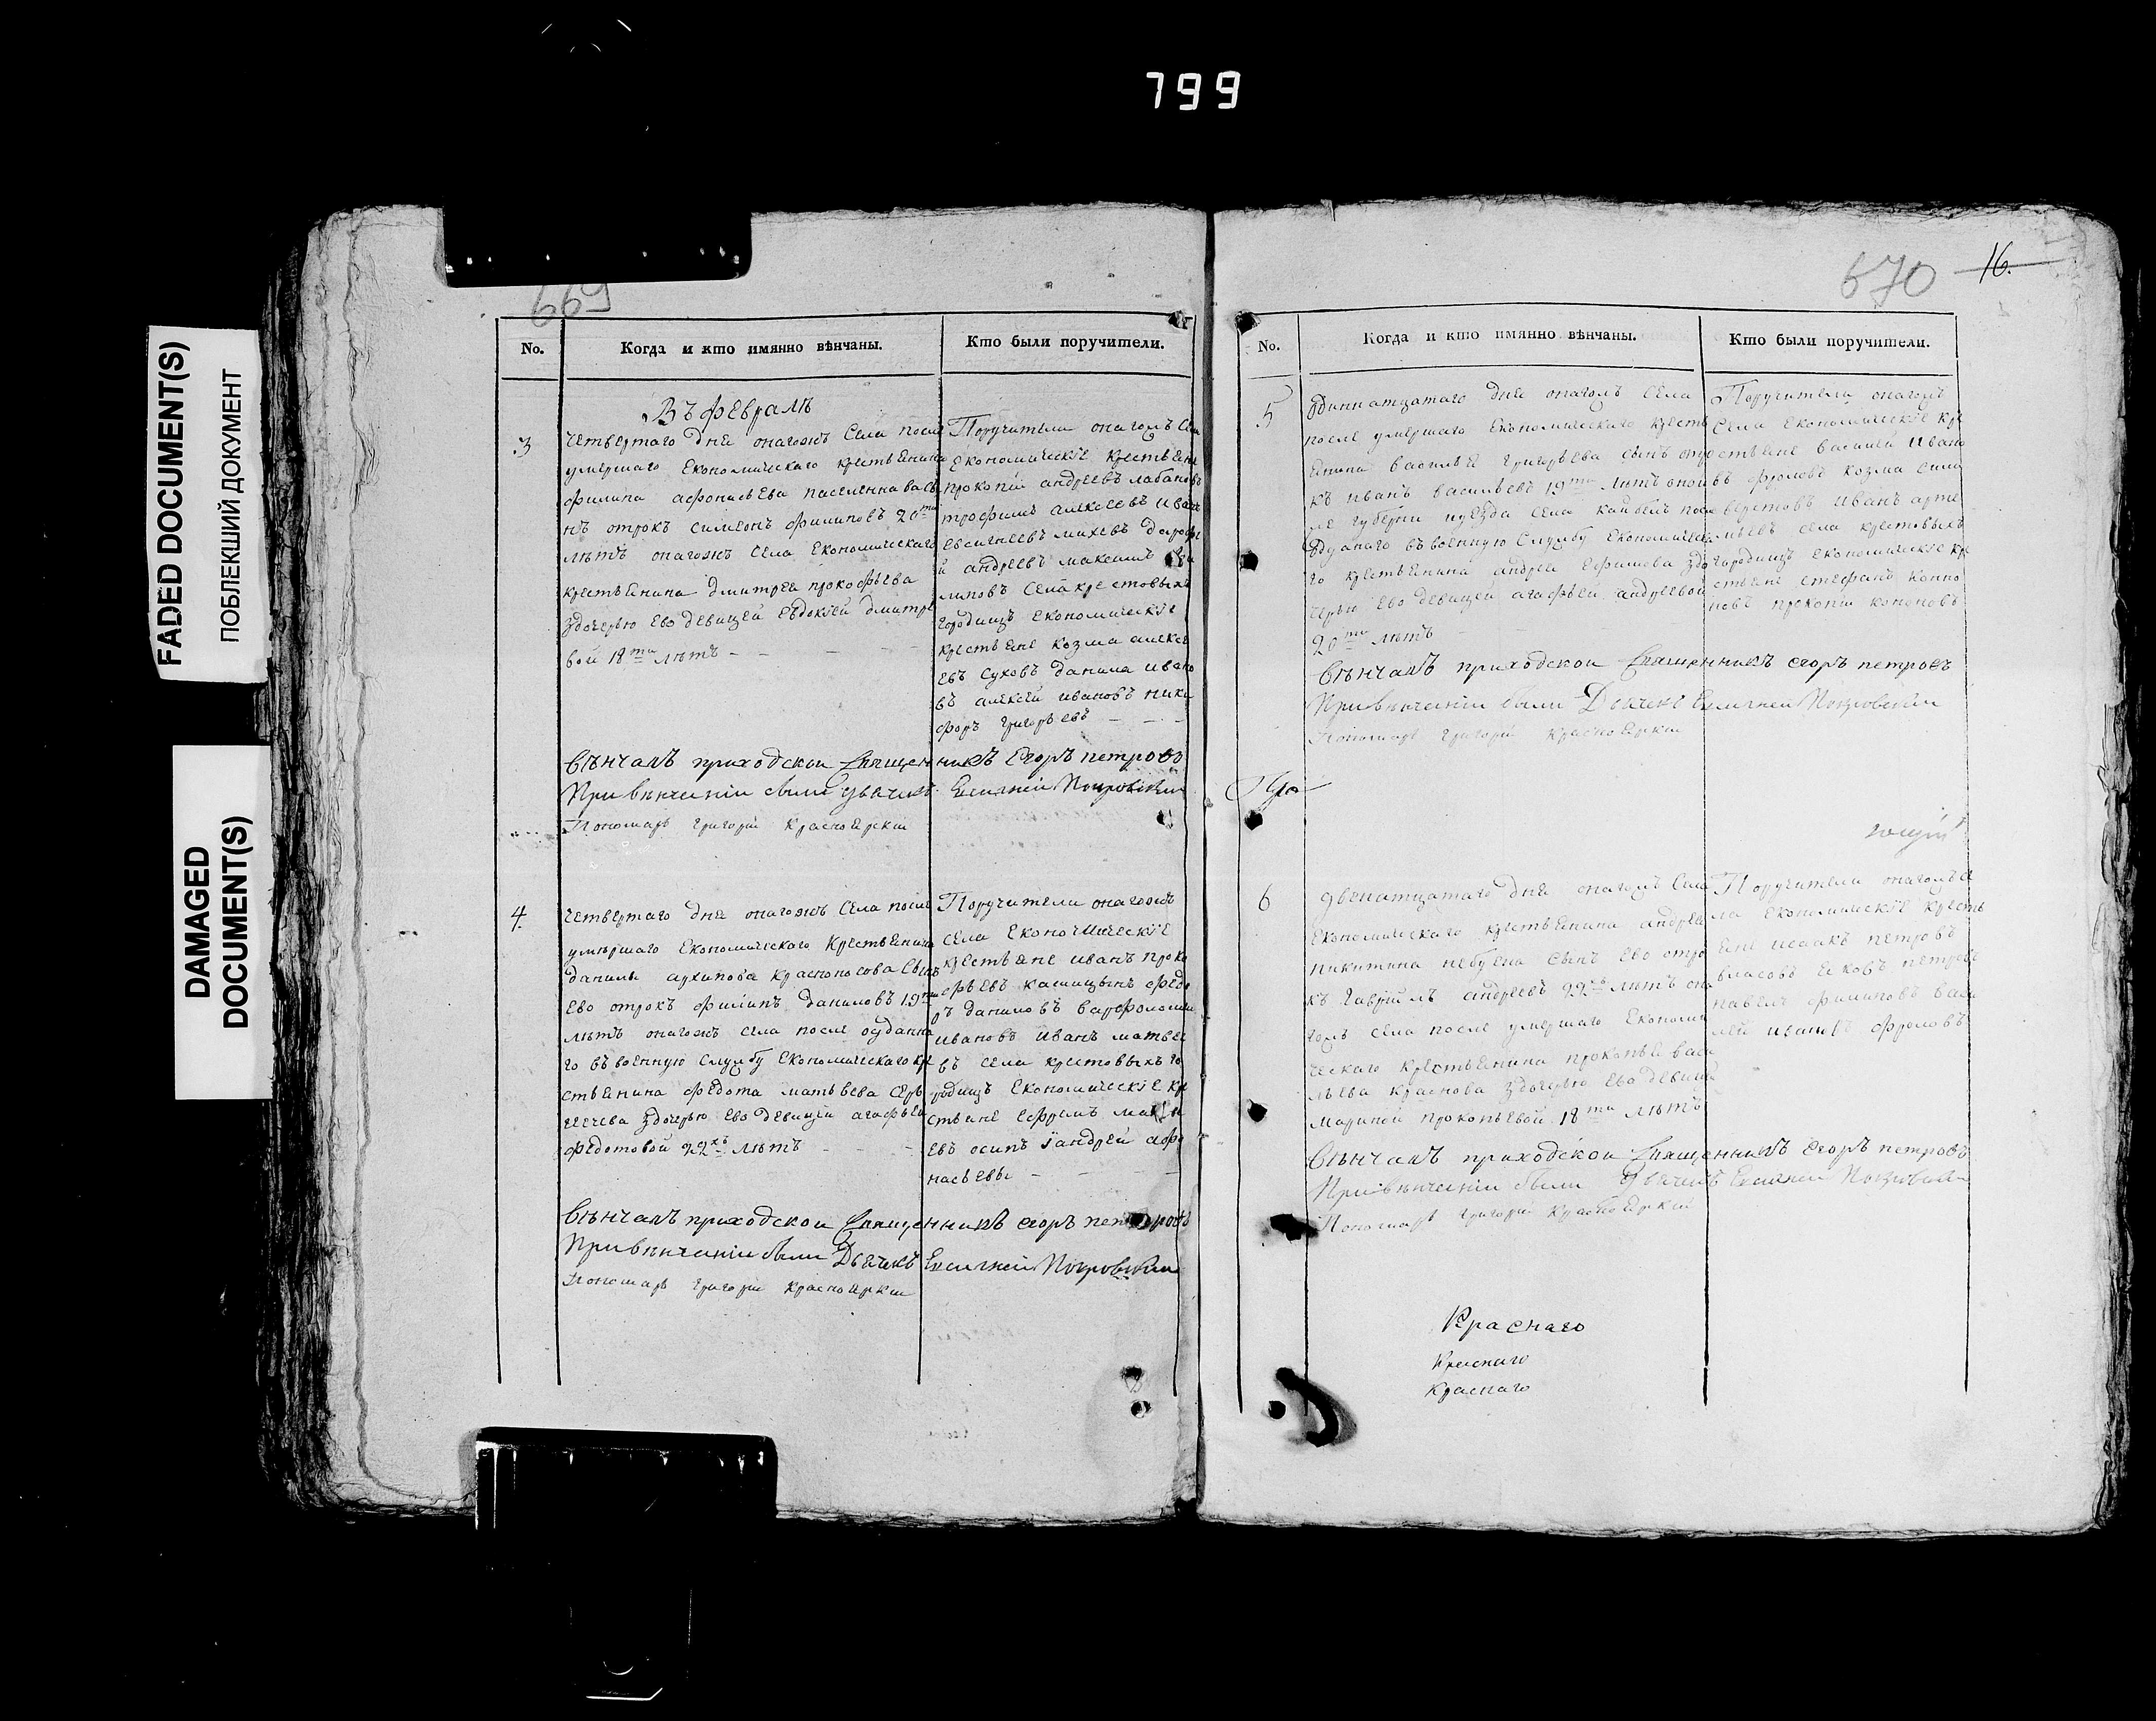 799
FADED DOCUMENT(S)
ПОБЛЕКШИЙ ДОКУМЕНТ
DAMAGED
DOCUMENT(S)
669
No.
Когда и кто имянно вѣнчаны.
Кто были поручители.
Въ февралѣ
3
четвертаго дня онагожъ села после
умершаго Економическаго крестьянина
филипа афонасьева
нъ отрокъ симеонъ филиповъ 20ти
лѣтъ онагожъ села Економическаго
крестьянина дмитрея прокофьева
здочерью ево девицей евдокіей дмитре
вой 18ти лѣтъ
Поручители онагожъ села
економическіе крестьяне
прокопій андреевъ лабановъ
трофимъ алексеевъ иванъ
евсигнеевъ михевъ дорофе
й андреевъ максимъ фи
липовъ села крестовыхъ
городищъ економическіе
крестьяне козма алексе
евъ суховъ данила ивано
въ алексей ивановъ ники
форъ григорьевъ
Вѣнчалъ приходской священникъ Егоръ петровъ
При вѣнчаніи были дьячекъ Евсигней Покровскій
Пономарь григорій красноярскій
4
четвертаго дня онагожъ села после
умершаго економическаго крестьянина
данилы архипова красносова сынъ
ево отрокъ филипъ даниловъ 19ти
лѣтъ онагожъ села после отданна
го въ военную службу економическаго кре
стьянина федота матвѣева
здочерью ево девицей агафьей
федотовой 22хъ лѣтъ
Поручители онагожъ
села економическіе
крестьяне иванъ проко
фьевъ камицынъ федо
ръ даниловъ варфоломей
ивановъ иванъ матвее
въ села крестовыхъ го
родищъ економическіе кре
стьяне ефремъ
евъ осипъ і андрей афо
насьевы
Вѣнчалъ приходской священникъ егоръ петровъ
При вѣнчаніи были Дьячекъ Евсигней Покровскій
Пономарь григорій красноярскій
670
16.
No.
Когда и кто имянно вѣнчаны.
Кто были поручители.
5
Одиннатцатаго дня онагожъ села
после умершаго економическаго кресть
янина василья григорьева сынъ отро
къ иванъ васильевъ 19ти лѣтъ оной
же губерни уезда села
отданаго въ военную службу економическа
го крестьянина андрея ефимова здо
черью ево девицей агафьей андреевой
20ти лѣтъ
Поручители онагожъ
села економическіе кре
стьяне василей ивано
въ фроловъ козма
иванъ арте
мьевъ села крестовыхъ
городищъ економическіе кре
стьяне стефанъ коно
новъ прокопій кононовъ
Вѣнчалъ приходской священникъ егоръ петровъ
При вѣнчаніи были Дьячекъ Евсигней Покровскій
Пономарь григорій красноярскій
6
двенатцатаго дня онагожъ села
економическаго крестьянина андрея
никитина сынъ ево отро
къ гаврійлъ андреевъ 22хъ лѣтъ она
гожъ села после умершаго економи
ческаго крестьянина прокопья васи
льева краснова здочерью ево девицей
мариной прокопьевой 18ти лѣтъ
Поручители онагожъ се
ла економическіе кресть
яне исаакъ петровъ
власовъ яковъ петровъ
павелъ филиповъ васи
лей ивановъ фроловъ
Вѣнчалъ приходской священникъ егоръ петровъ
При вѣнчаніи были дьячекъ Евсигней Покровскій
Пономарь григорій красноярскій
Краснаго
Краснаго
Краснаго